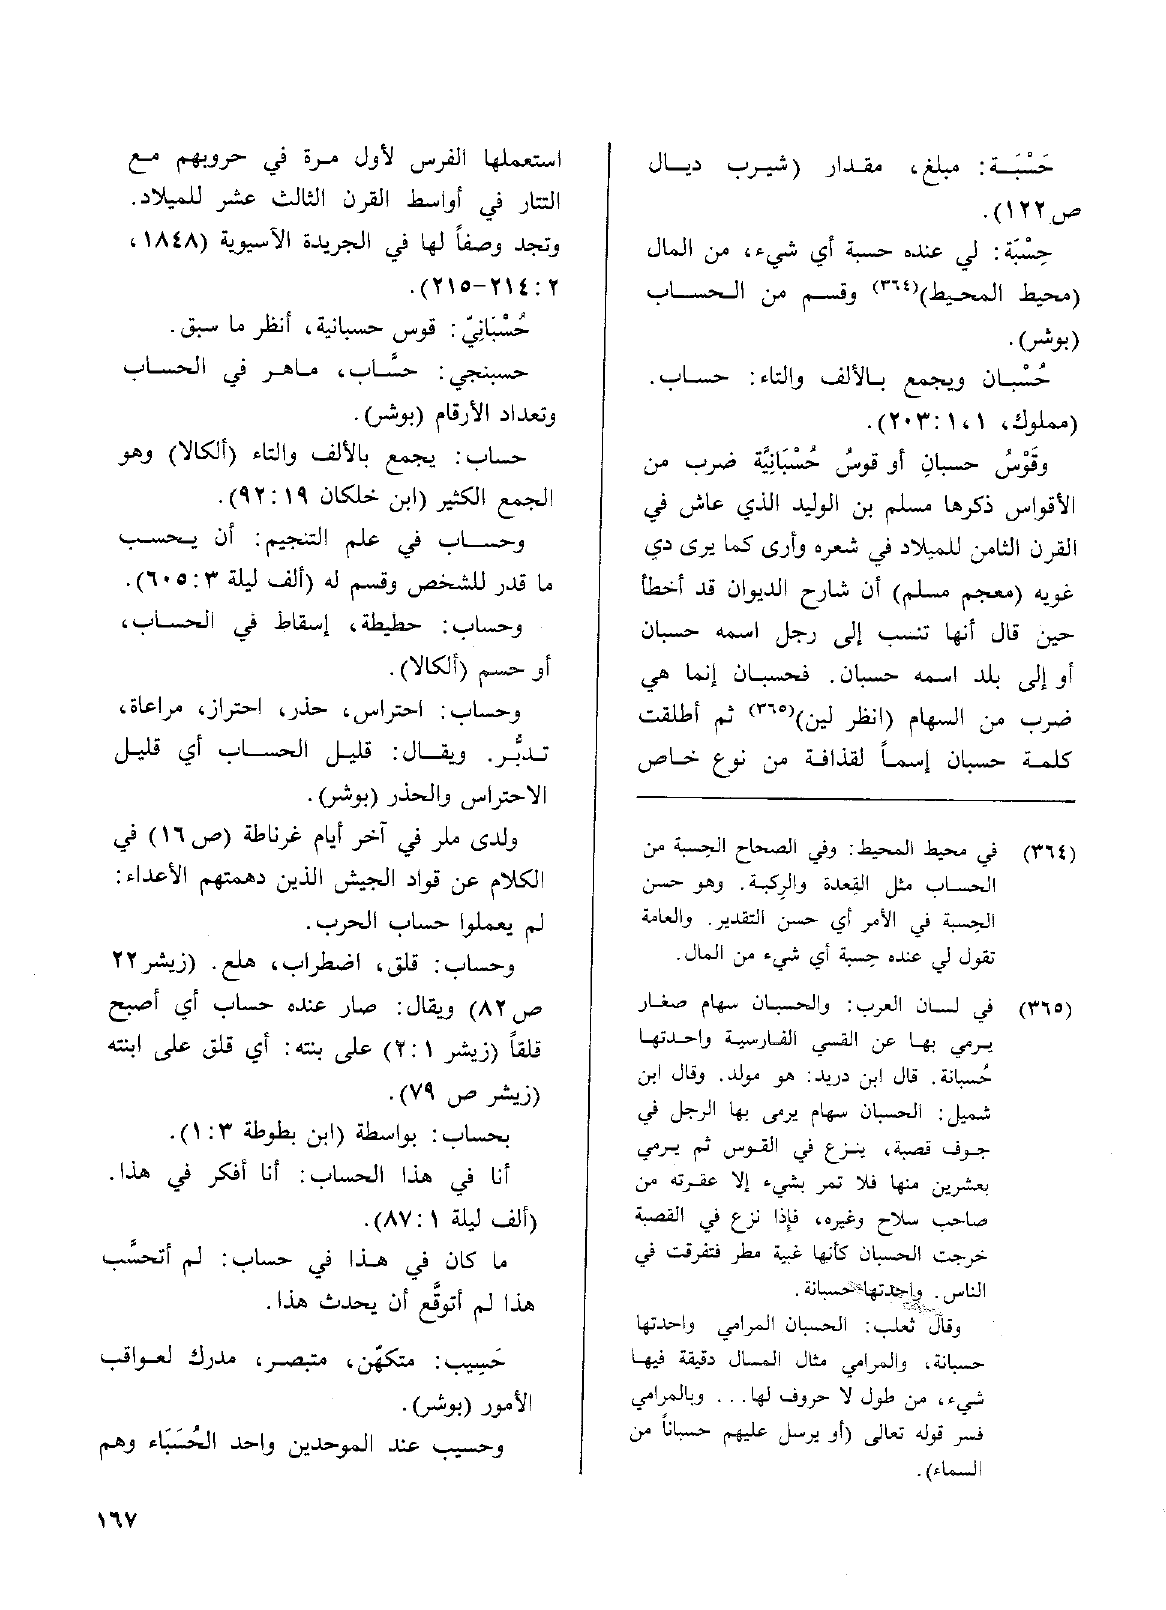 حَسْبَـة: مبلغ، مقـدار (شيـرب ديـال
ص١٢٢).
حِسْبَة: لي عنده حسبة أي شيء، من المال
(محيط المحيط)(٣٦٤) وقسـم من الحسـاب
(بوشر).
حُسْبـان ويجمع بـالألف والتاء: حسـاب.
(مملوك، ١، ١: ٢٠٣).
وقَوْسُ حسبانِ أو قوسُ حُسْبَانِيَّة ضرب من
الأقواس ذكرها مسلم بن الوليد الذي عاش في
القرن الثامن للميلاد في شعره وأرى كما يرى دي
غويه (معجم مسلم) أن شارح الديوان قد أخطأ
حين قال أنها تنسب إلى رجل اسمه حسبان
أو إلى بلد اسمه حسبان. فحسبان إنما هي
ضرب من السهام (انظر لين)(٣٦٥) ثم أطلقت
كلمـة حسبان إسمـاً لقذافـة من نوع خـاص
(٣٦٤) في محيط المحيط: وفي الصحاح الحِسبة من
الحساب مثل القِعدة والرِكبة. وهو حسن
الحِسبة في الأمر أي حسن التقدير. والعامة
تقول لي عنده حِسبة أي شيء من المال.
(٣٦٥) في لسان العرب: والحسبان سهام صغار
يرمي بهـا عن القسي الفـارسيـة واحـدتهـا
حُسبانة. قال ابن دريد: هو مولد. وقال ابن
شميل: الحسبان سهام يرمى بها الرجل في
جـوف قصبة، ينـزع في القـوس ثم يـرمي
بعشرين منها فلا تمر بشيء إلا عقـرته من
صاحب سلاح وغيره، فإذا نزع في القصبة
خرجت الحسبان كأنها غبية مطر فتفرقت في
الناس. واحدتها حسبانة.
وقال ثعلب: الحسبان المرامي واحدتها
حسبانة، والمرامي مثال المسال دقيقة فيها
شيء، من طول لا حروف لها... وبالمرامي
فسر قوله تعالى (أو يرسل عليهم حسباناً من
السماء).
استعملها الفرس لأول مـرة في حروبهم مـع
التتار في أواسط القرن الثالث عشر للميلاد.
وتجد وصفاً لها في الجريدة الآسيوية (١٨٤٨،
٢: ٢١٤-٢١٥).
حُسْبَانِيّ: قوس حسبانية، أنظر ما سبق.
حسبنجي: حسَّاب، ماهر في الحساب
وتعداد الأرقام (بوشر).
حساب: يجمع بالألف والتاء (ألكالا) وهو
الجمع الكثير (ابن خلكان ١٩: ٩٢).
وحسـاب في علم التنجيم: أن يـحسـب
ما قدر للشخص وقسم له (ألف ليلة ٣: ٦٠٥).
وحساب: حطيطة، إسقاط في الحساب،
أو حسم (ألكالا).
وحساب: احتراس، حذر، احتراز، مراعاة،
تـدبُّـر. ويقـال: قليـل الحسـاب أي قليـل
الاحتراس والحذر (بوشر).
ولدى ملر في آخر أيام غرناطة (ص١٦) في
الكلام عن قواد الجيش الذين دهمتهم الأعداء:
لم يعملوا حساب الحرب.
وحساب: قلق، اضطراب، هلع. (زيشر ٢٢
ص٨٢) ويقال: صار عنده حساب أي أصبح
قلقاً (زيشر ١: ٢) على بنته: أي قلق على ابنته
(زيشر ص ٧٩).
بحساب: بواسطة (ابن بطوطة ٣: ١).
أنا في هذا الحساب: أنا أفكر في هذا.
(ألف ليلة ١: ٨٧).
ما كان في هـذا في حساب: لم أتحسَّب
هذا لم أتوقَّع أن يحدث هذا.
حَسِيب: متكهّن، متبصر، مدرك لعـواقب
الأمور (بوشر).
وحسيب عند الموحدين واحد الحُسَبَاء وهم
١٦٧